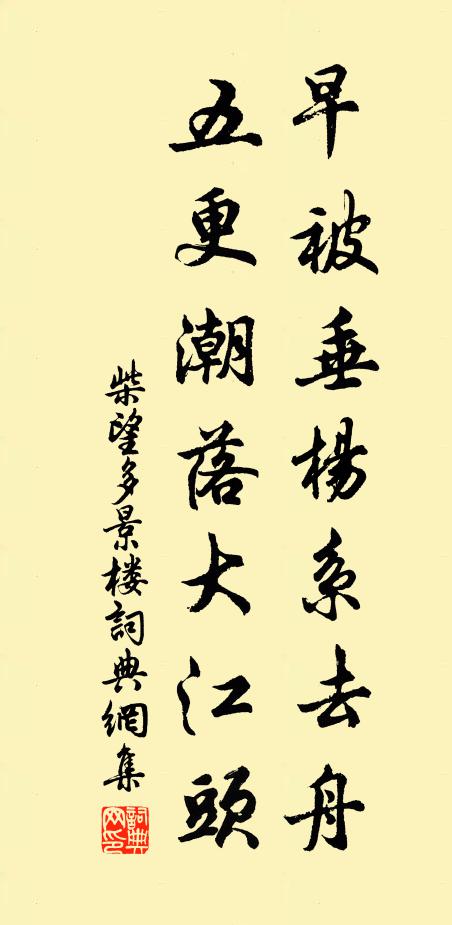 早被垂楊系去舟
五更潮落大江頭
柴望多景楼詞典網集
詞典网印